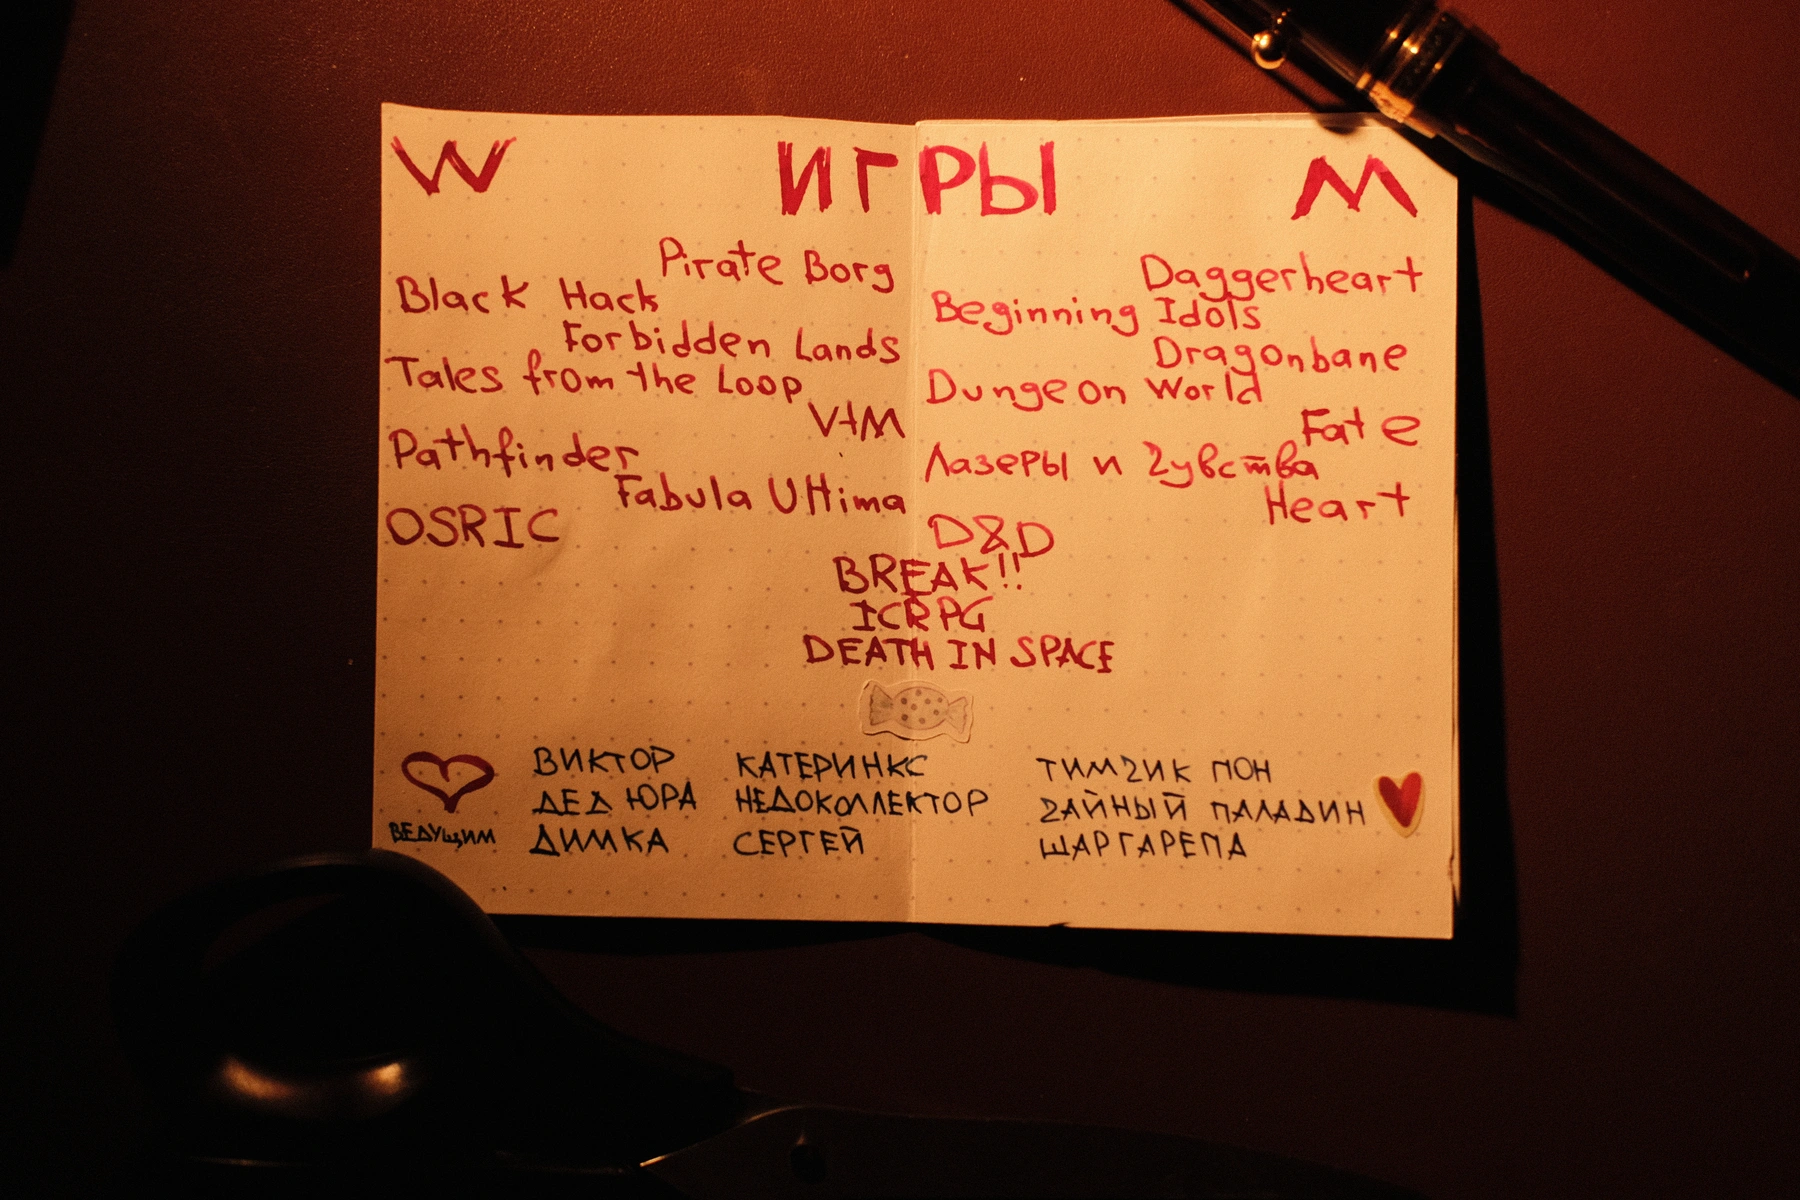 W ИГРЫ M
Pirate Borg
Black Hack
Forbidden Lands
Tales from the Loop
VtM
Pathfinder
Fabula Ultima
OSRIC
Daggerheart
Beginning Idols
Dragonbane
Dungeon World
Fate
Лазеры и Чувства
Heart
D&D
BREAK!!
ICRPG
DEATH IN SPACE
ВЕДУЩИМ
ВИКТОР
ДЕД ЮРА
ДИМКА
КАТЕРИНКС
НЕДОКОЛЛЕКТОР
СЕРГЕЙ
ТИМЧИК ПОН
ЧАЙНЫЙ ПАЛАДИН
ШАРГАРЕПА